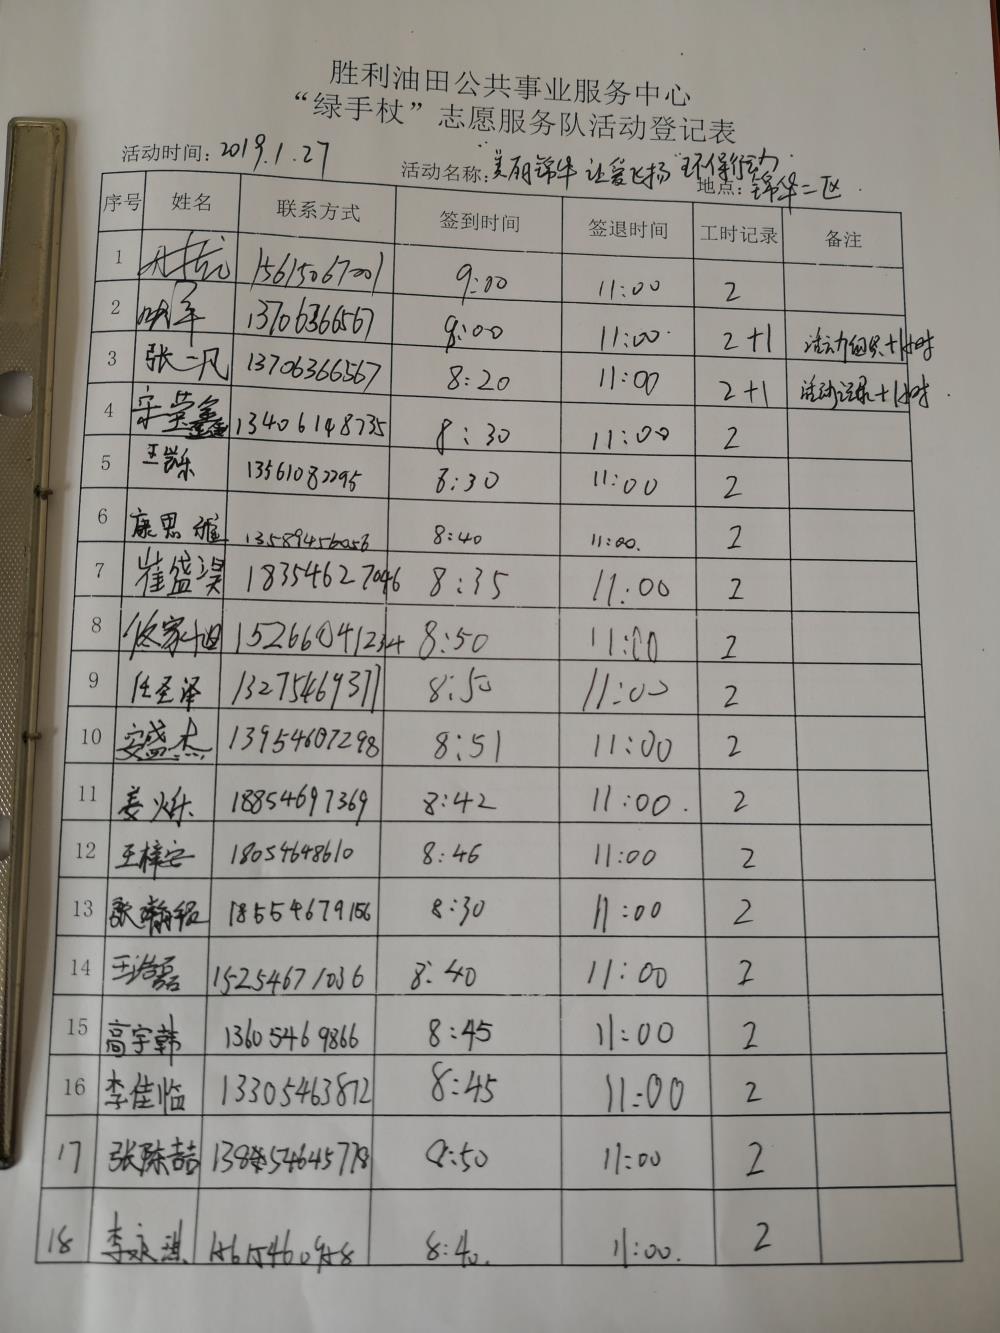 胜利油田公共事业服务中心
“绿手杖”志愿服务队活动登记表
活动时间：2019.1.27 活动名称：美丽锦华 让爱飞扬 环保行动 地点：锦华二区
序号 姓名 联系方式 签到时间 签退时间 工时记录 备注
1 15615067001 9:00 11:00 2
2 13706366567 8:00 11:00 2+1 活动组织+1小时
3 张一凡 13706366567 8:20 11:00 2+1 活动记录+1小时
4 宋莹鑫 13406148735 8:30 11:00 2
5 王凯乐 13561082295 8:30 11:00 2
6 康思维 13589456056 8:40 11:00 2
7 崔盛淏 18354627046 8:35 11:00 2
8 15266041234 8:50 11:00 2
9 任圣泽 13275469371 8:50 11:00 2
10 安盛杰 13954607298 8:51 11:00 2
11 姜火乐 18854697369 8:42 11:00 2
12 王梓安 18054648610 8:46 11:00 2
13 18554679156 8:30 11:00 2
14 王浩磊 15254671036 8:40 11:00 2
15 高宇韩 13605469866 8:45 11:00 2
16 李佳临 13305463812 8:45 11:00 2
17 张陈喆 8:50 11:00 2
18 8:40 11:00 2